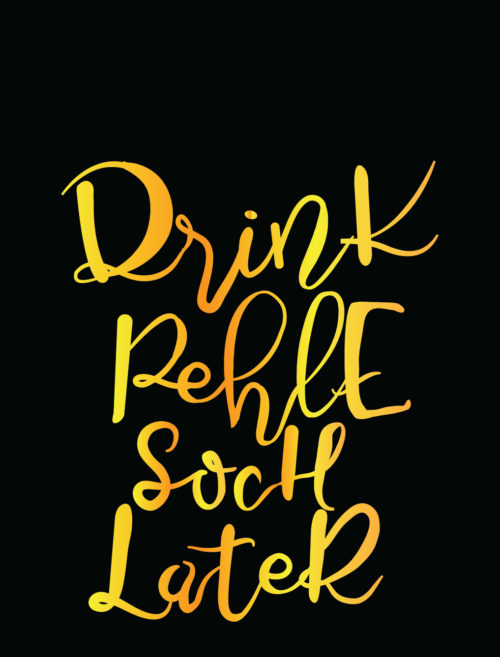 Drink
PehlE
SocH
LateR